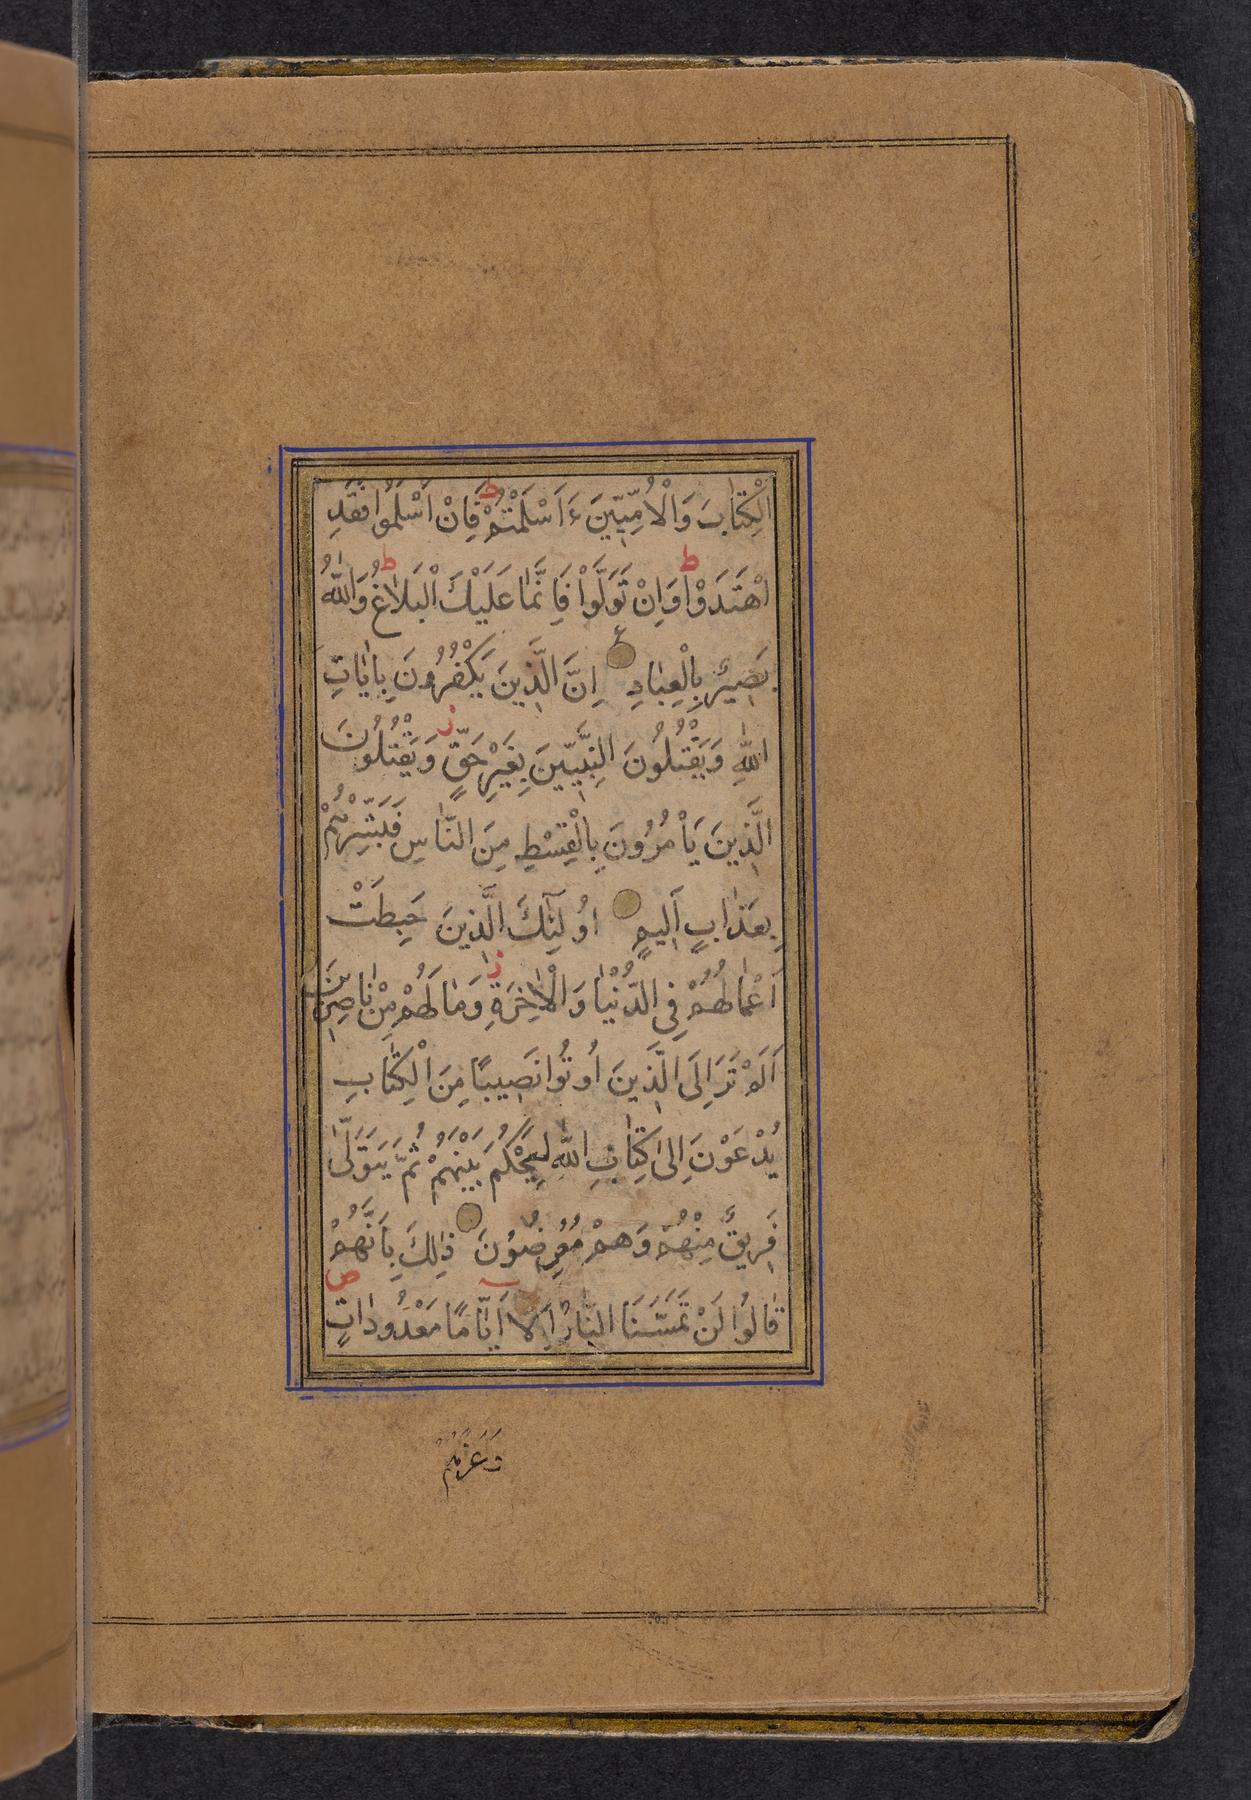 الْكِتٰابَ وَالْاُمِّيّٖينَ ءَاَسْلَمْتُمْ ط فَاِنْ اَسْلَمُوا فَقَدِ
اهْتَدَوْا ط وَاِنْ تَوَلَّوْا فَاِنَّمٰا عَلَيْكَ الْبَلٰاغُ ط وَاللّٰهُ
بَصٖيرٌ بِالْعِبٰادِ ع اِنَّ الَّذٖينَ يَكْفُرُونَ بِاٰيٰاتِ
اللّٰهِ وَيَقْتُلُونَ النَّبِيّٖينَ بِغَيْرِ حَقٍّ ز وَيَقْتُلُونَ
الَّذٖينَ يَاْمُرُونَ بِالْقِسْطِ مِنَ النّٰاسِ فَبَشِّرْهُمْ
بِعَذٰابٍ اَلٖيمٍ اُولٰٓئِكَ الَّذٖينَ حَبِطَتْ
اَعْمٰالُهُمْ فِي الدُّنْيٰا وَالْاٰخِرَةِ ز وَمٰا لَهُمْ مِنْ نٰاصِرٖينَ
اَلَمْ تَرَ اِلَى الَّذٖينَ اُوتُوا نَصٖيبًا مِنَ الْكِتٰابِ
يُدْعَوْنَ اِلىٰ كِتٰابِ اللّٰهِ لِيَحْكُمَ بَيْنَهُمْ ثُمَّ يَتَوَلّىٰ
فَرٖيقٌ مِنْهُمْ وَهُمْ مُعْرِضُونَ ذٰلِكَ بِاَنَّهُمْ
قٰالُوا لَنْ تَمَسَّنَا النّٰارُ اِلّٰٓا اَيّٰامًا مَعْدُودٰاتٍ ص
وَغَرَّهُمْ